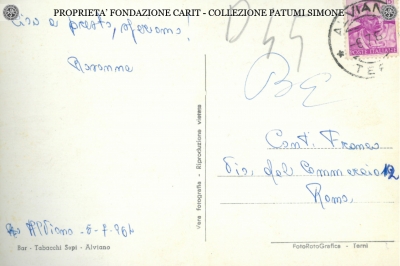 PROPRIETA' FONDAZIONE CARIT - COLLEZIONE PATUMI SIMONE
Ciao a presto, speriamo!
Marianna
Alviano - 6-7-964
Bar - Tabacchi Sepi - Alviano
Vera fotografia - Riproduzione vietata
D44
BE
ALVIANO
TE
POSTE ITALIANE
Cont. Franco
Via del Commercio 12
Roma
FotoRotoGrafica - Terni